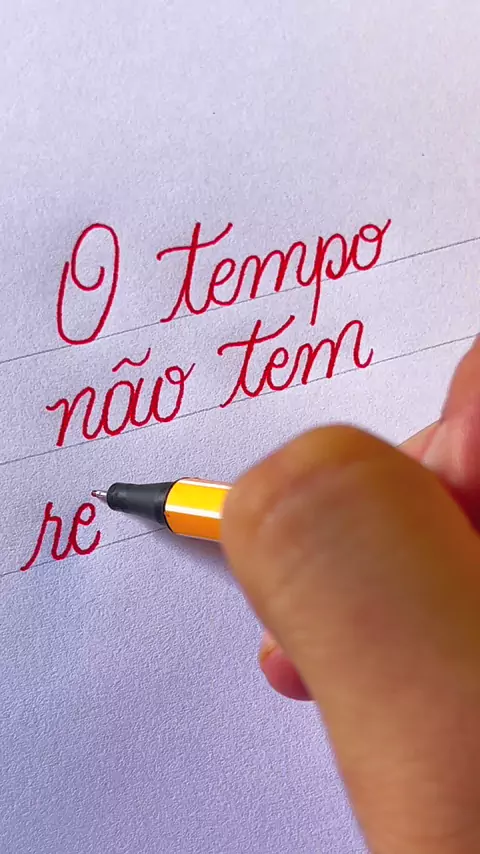 O tempo
não tem
re